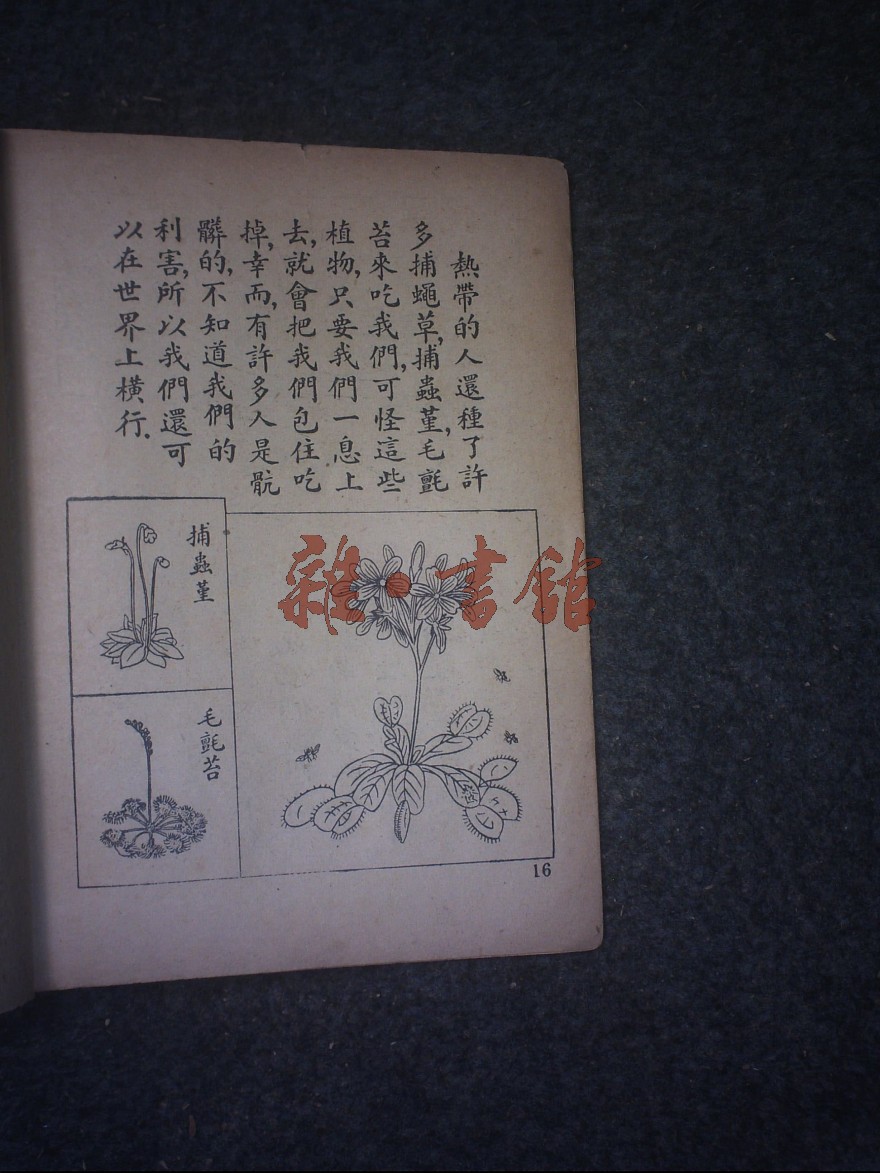 熱帶的人還種了許
多捕蠅草,捕蟲堇,毛氈
苔來吃我們,可怪這些
植物,只要我們一息上
去,就會把我們包住吃
掉,幸而,有許多人是骯
髒的,不知道我們的
利害,所以我們還可
以在世界上橫行.
捕蟲堇
毛氈苔
雜·書館
16